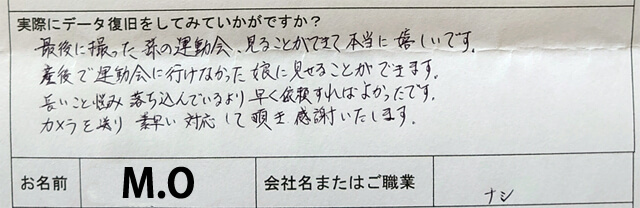 実際にデータ復旧をしてみていかがですか？
最後に撮った孫の運動会、見ることができて本当に嬉しいです。
産後で運動会に行けなかった娘に見せることができます。
長いこと悩み落ち込んでいるより早く依頼すればよかったです。
カメラを送り素早い対応して頂き感謝いたします。
お名前 M.O 会社名またはご職業 ナシ